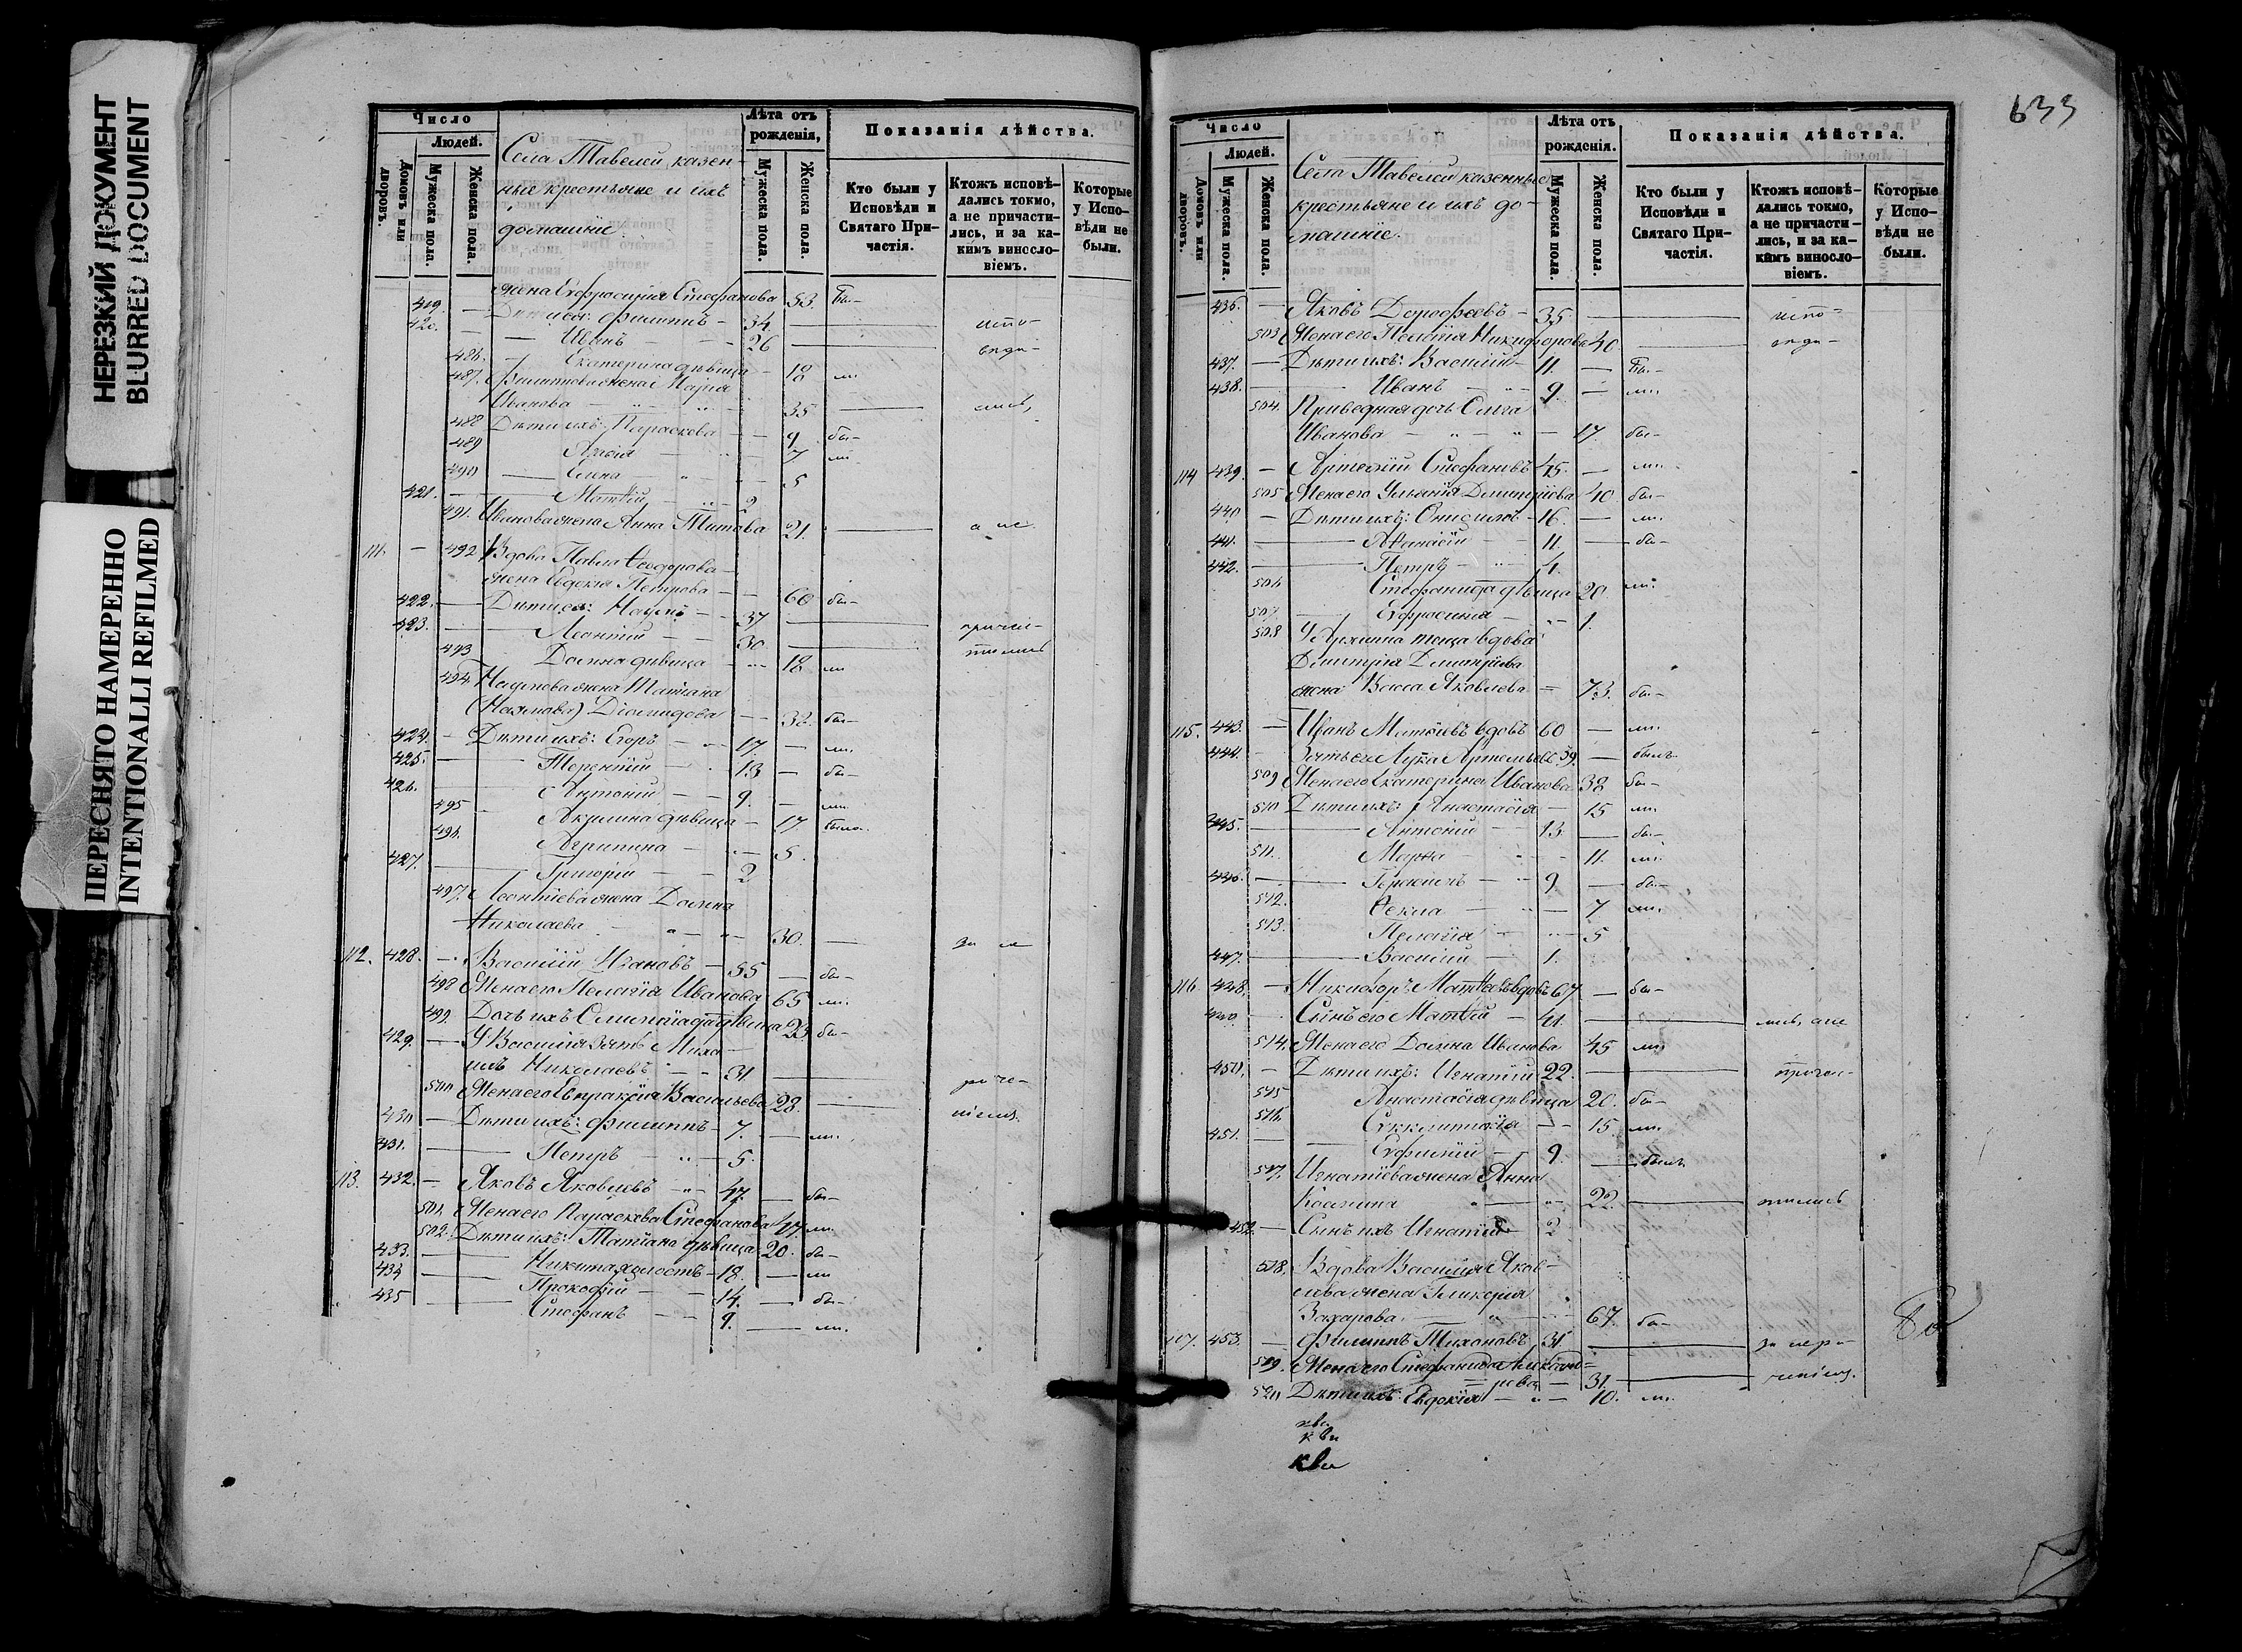 НЕРЕЗКИЙ ДОКУМЕНТ
BLURRED DOCUMENT
ПЕРЕСНЯТО НАМЕРЕННО
INTENTIONALLI REFILMED
Число
Людей.
Домовъ или дворовъ.
Мужеска пола.
Женска пола.
Села Тавелей, казен-
ные крестьяне и ихъ
домашніе.
Лѣта отъ рожденія,
Мужеска пола.
Женска пола.
Показанія дѣйства.
Кто были у Исповѣди и Святаго При-частія.
Ктожъ исповѣ-дались токмо, а не причасти-лись, и за ка-кимъ винosло-віемъ.
Которые у Испо-вѣди не были.
жена Евфросинія Стефанова 53 бы-
419. — Дѣти ея: Филиппъ — 34. — испо-
420. — Иванъ — 26 — вѣда-
486. — Екатерина дѣвица — 18 ли
487. Филиппова жена Марія
Иванова — 35 — лись,
488 Дѣти ихъ: Параскева — 9 бы-
489 — 7 ли
490 — Елена — 5
421. — Матѳій — 2
491. Иванова жена Анна Титова 21. — а не
111. — 492 Вдова Павла Ѳеодорова
жена Евдокія Петрова — 60 бы-
422. — Дѣти ея: Наумъ — 37 — причас-
423. — Леонтій — 30 — тились
493 Домна дѣвица — 18 ли
494 Наумова жена Татіана
Діомидова — 38. бы-
424. — Дѣти ихъ: Егоръ — 17. — ли.
425. — Терентій — 13 — бы-
426. — Антоній — 9. — ли.
495 — Акилина дѣвица — 17. была.
496. Агрипина — 5.
427. — Григорій — 2
497. Леонтіева жена Домна
Николаева — 30. — за не
112. 428. — Василій Ивановъ — 55 — бы-
498 Жена его Пелагія Иванова 65 ли.
499. Дочь ихъ Олимпіада дѣвица 23 бы-
429. — У Василія зять Миха-
илъ Николаевъ — 31 —
500 Жена его Евпраксія Васильева 28. —
430 — Дѣти ихъ: Филиппъ — 7. — ли.
431. — Петръ — 5.
113. 432. — Яковъ Яковлевъ — 47. — бы-
501. Жена его Параскева Стефанова 47. ли.
502. Дѣти ихъ: Татіана дѣвица 20. бы-
433. — Никита холостъ — 18. — ли
434 — Прокофій — 14. — бы-
435 — Стефанъ — 9. — ли.
633
Число
Людей.
Домовъ или дворовъ.
Мужеска пола.
Женска пола.
Села Тавелей казенные
крестьяне и ихъ до-
машніе.
Лѣта отъ рожденія.
Мужеска пола.
Женска пола.
Показанія дѣйства.
Кто были у Исповѣди и Святаго При-частія.
Ктожъ исповѣ-дались токмо, а не причасти-лись, и за ка-кимъ винослo-віемъ.
Которые у Испо-вѣди не были.
436. — Яковъ Дорофеевъ — 35. — испо-
503 Жена его Пелагія Никифорова 40. — вѣда-
437. — Дѣти ихъ: Василій — 11. — бы-
438. — Иванъ — 9. — ли,
504. Приведная дочь Ольга
Иванова — 17. бы-
114 439. — Артемій Стефановъ 45. — ли.
505 Жена его Ульянія Димитріева 40 бы-
440 — Дѣти ихъ: Онисимъ — 16. — ли.
441. — Аѳанасій — 11. — бы-
442. — Петръ — 4.
506 Стефанида дѣвица 20. ли
507 — Евфросинія — 1.
508 У Артемія теща вдова
Димитрія Димитріева
жена Васса Яковлева — 73. бы-
115. 443. — Иванъ Матѳіевъ вдовъ 60 — ли.
444. — Зять его Лука Артемьевъ 39. — былъ
509 Жена его Екатерина Иванова 38 бы-
510 Дѣти ихъ: Анастасія — 15 ли.
445. — Антоній — 13 — бы-
511. Марѳа — 11. ли.
446. — Герасимъ — 9. — бы-
512. Ѳекла — 7 ли.
513. Пелагія — 5
447. — Василій — 1.
116. 448. — Никифоръ Матѳіевъ вдовъ 67 — бы-
449. — Сынъ его Матѳій — 41. — лись, а не
514. Жена его Домна Иванова 45 ли
450. — Дѣти ихъ: Игнатій 22. — причас-
515 Анастасія дѣвица 20. бы-
516. Сукклитикія — 15. ли.
451. — Евфимій — 9. — былъ
517. Игнатіева жена Анна
Козмина — 22. — тились
452. — Сынъ ихъ Игнатій 2
518. Вдова Василія Яков-
лева жена Гликерія
Захарова. — 67. бы-
117. 453. — Филиппъ Тихоновъ 31 — за нера-
519. Жена его Стефанида Никано-
рова — 31. —ченіемъ.
520 Дѣти ихъ: Евдокія — 10. ли.